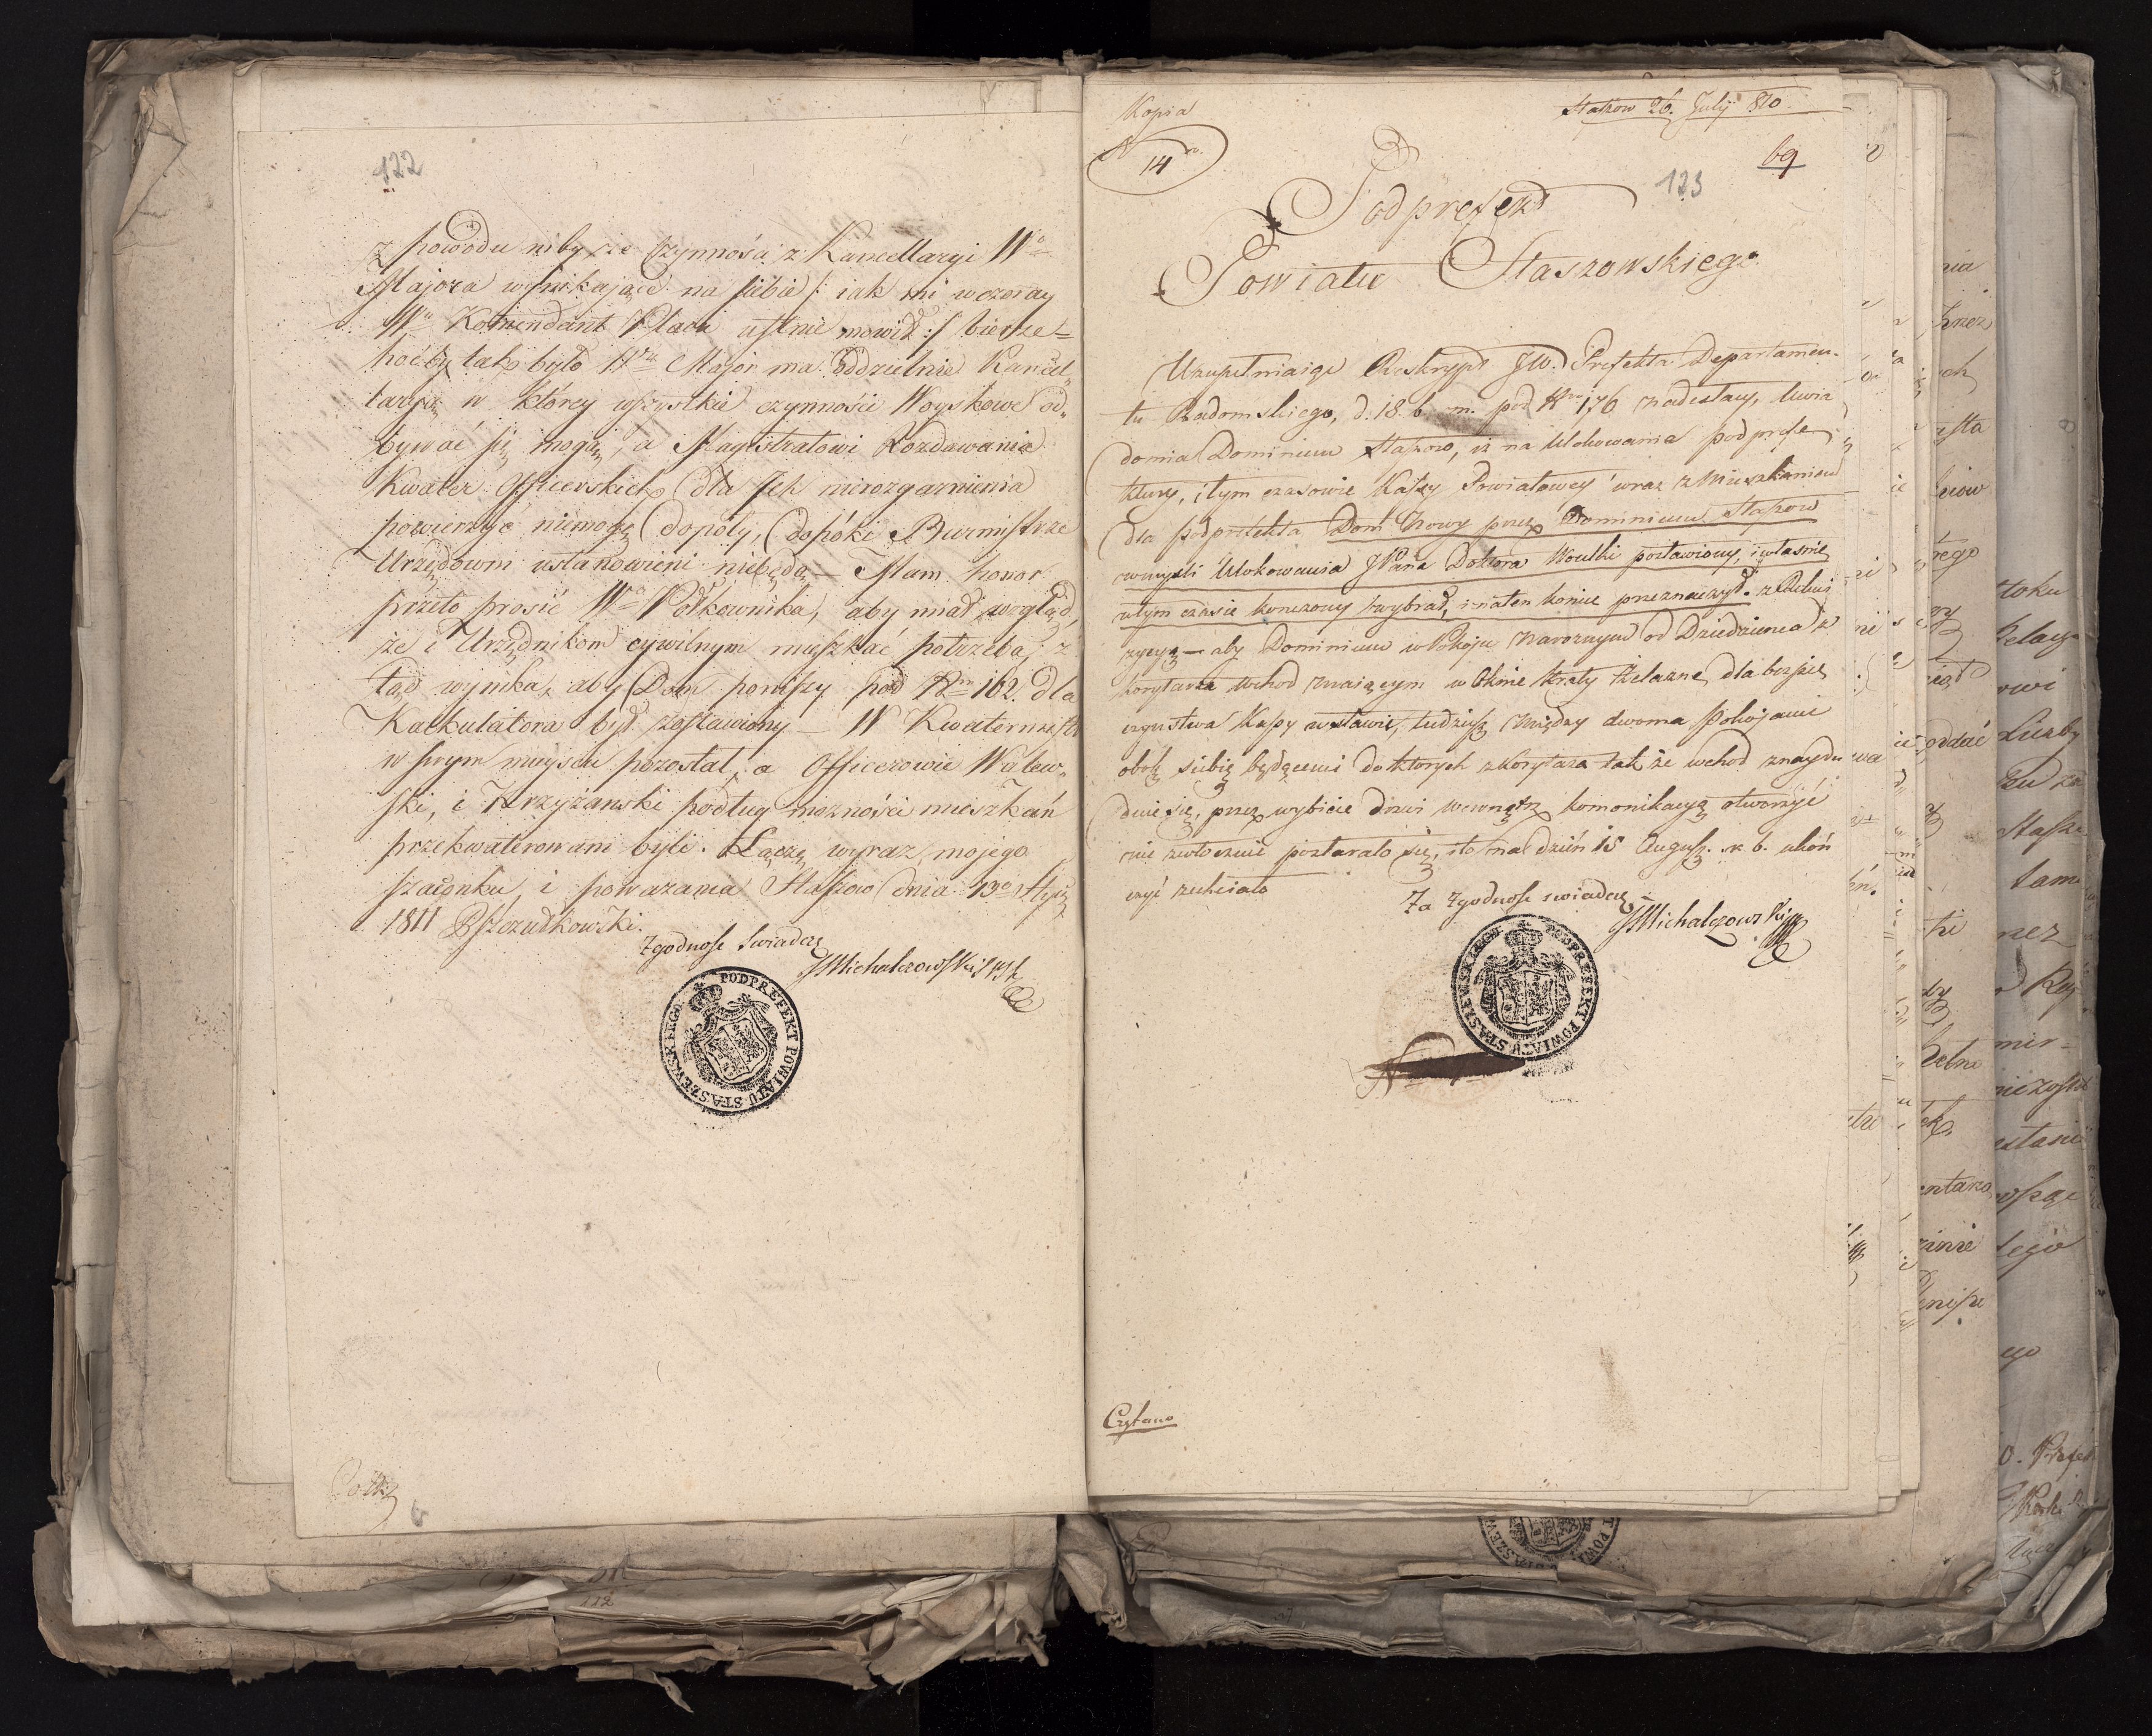 122
z powodu niby, że czynności z Kancellaryi Wo
Majora wynikające na siebie /: iak mi wczoray
Wn Komendant Placu ustnie mowił :/ bierze =
hoćby tak było Wny Major ma oddzielnie Kancel„
laryą w którey wszystkie czynności Woyskowe od„
bywać się mogą, a Magistratowi Rozdawania
Kwater Officerskich dla Jch nierozgarnienia
powierzyć niemogę dopoty, dopóki Burmistrze
Urzędowni ustanowieni niebędą — Mam honor
przeto prosić Wo Półkownika, aby miał wzgląd,
że i Urzędnikom cywilnym mięszkać potrzeba, z
tąd wynika, aby Dom poniższy pod Nrm 162. dla
Kalkulatora był zostawiony — W Kwatermistrz
w swym mieyscu pozostał, a Officerowie Walew„
ski, i Krzyżanski podług możności mieszkań
przekwaterowani byli. Łączę wyraz mojego
szacunku i poważania Staszow dnia 13o
1811 Pszczułkowski.
Zgodność swiadczę
JMichalczowski
PODPREFEKT POWIATU STASZEWSKIEGO
Kopia
Staszow 26. July 810
N 14
69
123
Podprefekt
Powiatu Staszowskiego
Uzupełniaiąc Reskrypt JW. Prefekta Departamen„
tu Radomskiego, d. 18. b. m. pod Nro 176 nadesłany, uwia
domia Dominium Staszow, iż na Ulokowania podprefe„
ktury, i tym czasowie Kassy Powiatowey wraz z Mieszkaniem
dla podprefekta Dom Nowy przez Dominium Staszow
wmyśli Ulokowania JPana Doktora Woulki postawiony, i własnie
w tym czasie konczony wybrał, i na ten koniec przeznaczył.
życzy — aby Dominium w Pokoju Narożnym od Dziedzienca z
korytarza wchod maiącym w Oknie Kraty Żelazne dla bezpie„
czeństwa Kassy wstawić, tudzież między dwoma Pokojami
obok siebie będącemi do ktorych z korytarza tak że wchod znaydu
duie się, przez wybicie drzwi wewnątrz komonikacyą otworzyć
nie zwłocznie postarało się, i te na dzień 15 August. r. b. ukoń
czyć zechciało
Za zgodność swiadczę
JMichalczowski
PODPREFEKT POWIATU STASZEWSKIEGO
Czytano
112